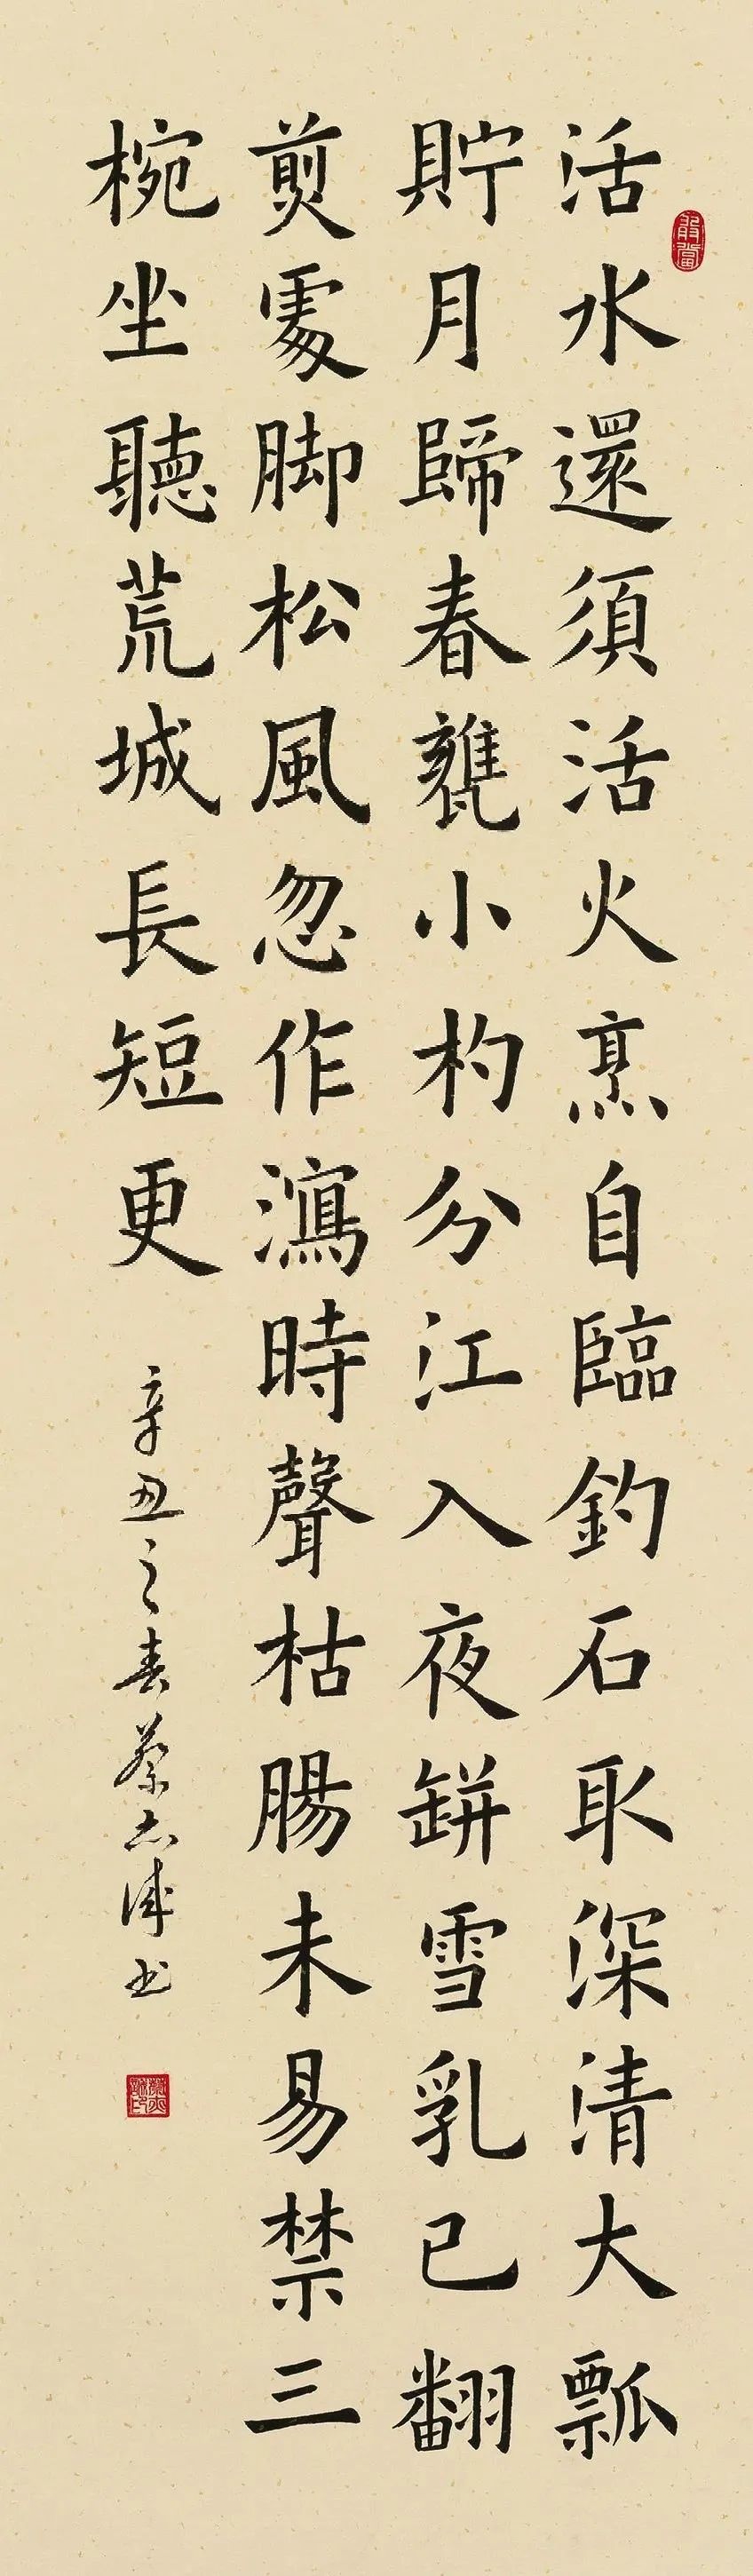 活水還須活火烹自臨釣石取深清大瓢
貯月歸春甕小杓分江入夜缾雪乳已翻
煎處脚松風忽作瀉時聲枯腸未易禁三
椀坐聽荒城長短更
辛丑之春蔡志誠书